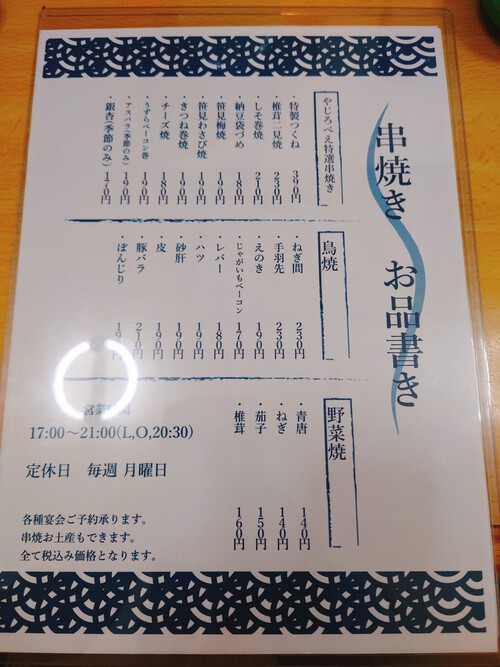 串焼き お品書き
やじろべえ特選串焼き
・特製つくね 390円
・椎茸二見焼 230円
・しそ巻焼 210円
・納豆袋づめ 180円
・笹見梅焼 190円
・笹見わさび焼 190円
・きつね巻焼 190円
・チーズ焼 180円
・うずらベーコン巻 190円
・アスパラ(季節のみ) 190円
・銀杏(季節のみ) 170円
鳥焼
・ねぎ間 230円
・手羽先 230円
・えのき 190円
・じゃがいもベーコン 170円
・レバー 180円
・ハツ 190円
・砂肝 190円
・皮 190円
・豚バラ 210円
・ぼんじり 190円
野菜焼
・青唐 140円
・ねぎ 140円
・茄子 150円
・椎茸 160円
営業時間
17:00〜21:00(L,O,20:30)
定休日 毎週 月曜日
各種宴会ご予約承ります。
串焼お土産もできます。
全て税込み価格となります。